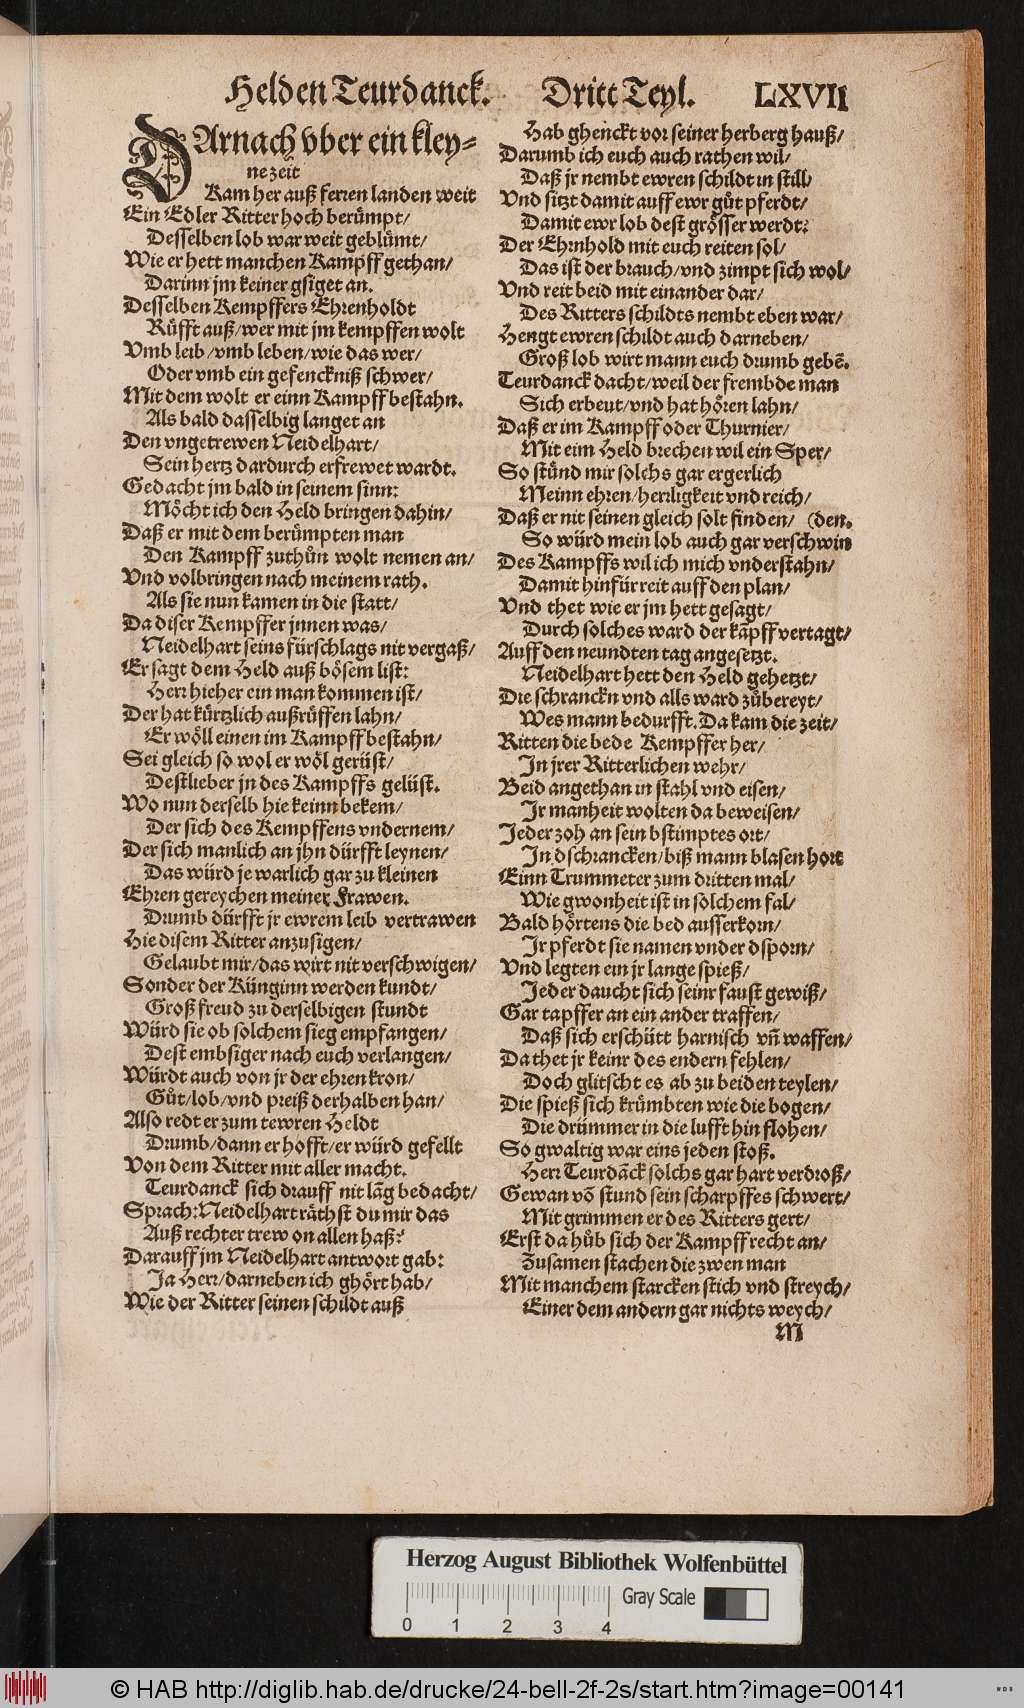 Helden Teurdanck. Dritt Teyl. LXVII
DArnach vber ein kley-
ne zeit
Kam her auß ferren landen weit
Ein Edler Ritter hoch berümpt/
Desselben lob war weit geblümt/
Wie er hett manchen Kampff gethan/
Darinn jm keiner gsiget an.
Desselben Kempffers Ehrenholdt
Rüfft auß/wer mit jm kempffen wolt
Vmb leib/vmb leben/wie das wer/
Oder vmb ein gefenckniß schwer/
Mit dem wolt er einn Kampff bestahn.
Als bald dasselbig langet an
Den vngetrewen Neidelhart/
Sein hertz dardurch erfrewet wardt.
Gedacht jm bald in seinem sinn:
Möcht ich den Held bringen dahin/
Daß er mit dem berümpten man
Den Kampff zuthůn wolt nemen an/
Vnd volbringen nach meinem rath.
Als sie nun kamen in die statt/
Da diser Kempffer jnnen was/
Neidelhart seins fürschlags nit vergaß/
Er sagt dem Held auß bösem list:
Herr hieher ein man kommen ist/
Der hat kürtzlich außrüffen lahn/
Er wöll einen im Kampff bestahn/
Sei gleich so wol er wöl gerüst/
Destlieber jn des Kampffs gelüst.
Wo nun derselb hie keinn bekem/
Der sich des Kempffens vndernem/
Der sich manlich an jhn dürfft leynen/
Das würd je warlich gar zu kleinen
Ehren gereychen meiner Frawen.
Drumb dürfft jr ewrem leib vertrawen
Hie disem Ritter anzusigen/
Gelaubt mir/das wirt nit verschwigen/
Sonder der Künginn werden kundt/
Groß freud zu derselbigen stundt
Würd sie ob solchem sieg empfangen/
Dest embsiger nach euch verlangen/
Würdt auch von jr der ehren kron/
Gůt/lob/vnd preiß derhalben han/
Also redt er zum tewren Heldt
Drumb/dann er hofft/er würd gefellt
Von dem Ritter mit aller macht.
Teurdanck sich drauff nit lãg bedacht/
Sprach: Neidelhart räthst du mir das
Auß rechter trew on allen haß?
Darauff jm Neidelhart antwort gab:
Ja Herr/darneben ich ghört hab/
Wie der Ritter seinen schildt auß
Hab ghenckt vor seiner herberg hauß/
Darumb ich euch auch rathen wil/
Daß jr nembt ewren schildt in still/
Vnd sitzt damit auff ewr gůt pferdt/
Damit ewr lob dest grösser werdt?
Der Ehrnhold mit euch reiten sol/
Das ist der brauch/vnd zimpt sich wol/
Vnd reit beid mit einander dar/
Des Ritters schildts nembt eben war/
Hengt ewren schildt auch darneben/
Groß lob wirt mann euch drumb gebẽ.
Teurdanck dacht/weil der frembde man
Sich erbeut/vnd hat hören lahn/
Daß er im Kampff oder Thurnier/
Mit eim Held brechen wil ein Sper/
So stünd mir solchs gar ergerlich
Meinn ehren/herrligkeit vnd reich/
Daß er nit seinen gleich solt finden/ (den.
So würd mein lob auch gar verschwin
Des Kampffs wil ich mich vnderstahn/
Damit hinfür reit auff den plan/
Vnd thet wie er jm hett gesagt/
Durch solches ward der kãpff vertagt/
Auff den neundten tag angesetzt.
Neidelhart hett den Held gehetzt/
Die schranckn vnd alls ward zůbereyt/
Wes mann bedurfft. Da kam die zeit/
Ritten die bede Kempffer her/
In jrer Ritterlichen wehr/
Beid angethan in stahl vnd eisen/
Jr manheit wolten da beweisen/
Jeder zoh an sein bstimptes ort/
In dschrancken/biß mann blasen hort
Einn Trummeter zum dritten mal/
Wie gwonheit ist in solchem fal/
Bald hörtens die bed ausserkorn/
Jr pferdt sie namen vnder dsporn/
Vnd legten ein jr lange spieß/
Jeder daucht sich seinr faust gewiß/
Gar tapffer an ein ander traffen/
Daß sich erschütt harnisch vñ waffen/
Da thet jr keinr des endern fehlen/
Doch glitscht es ab zu beiden teylen/
Die spieß sich krümbten wie die bogen/
Die drümmer in die lufft hin flohen/
So gwaltig war eins jeden stoß.
Herr Teurdãck solchs gar hart verdroß/
Gewan võ stund sein scharpffes schwert/
Mit grimmen er des Ritters gert/
Erst da hůb sich der Kampff recht an/
Zusamen stachen die zwen man
Mit manchem starcken stich vnd streych/
Einer dem andern gar nichts weych/
M
Herzog August Bibliothek Wolfenbüttel
Gray Scale
0 1 2 3 4
© HAB http://diglib.hab.de/drucke/24-bell-2f-2s/start.htm?image=00141